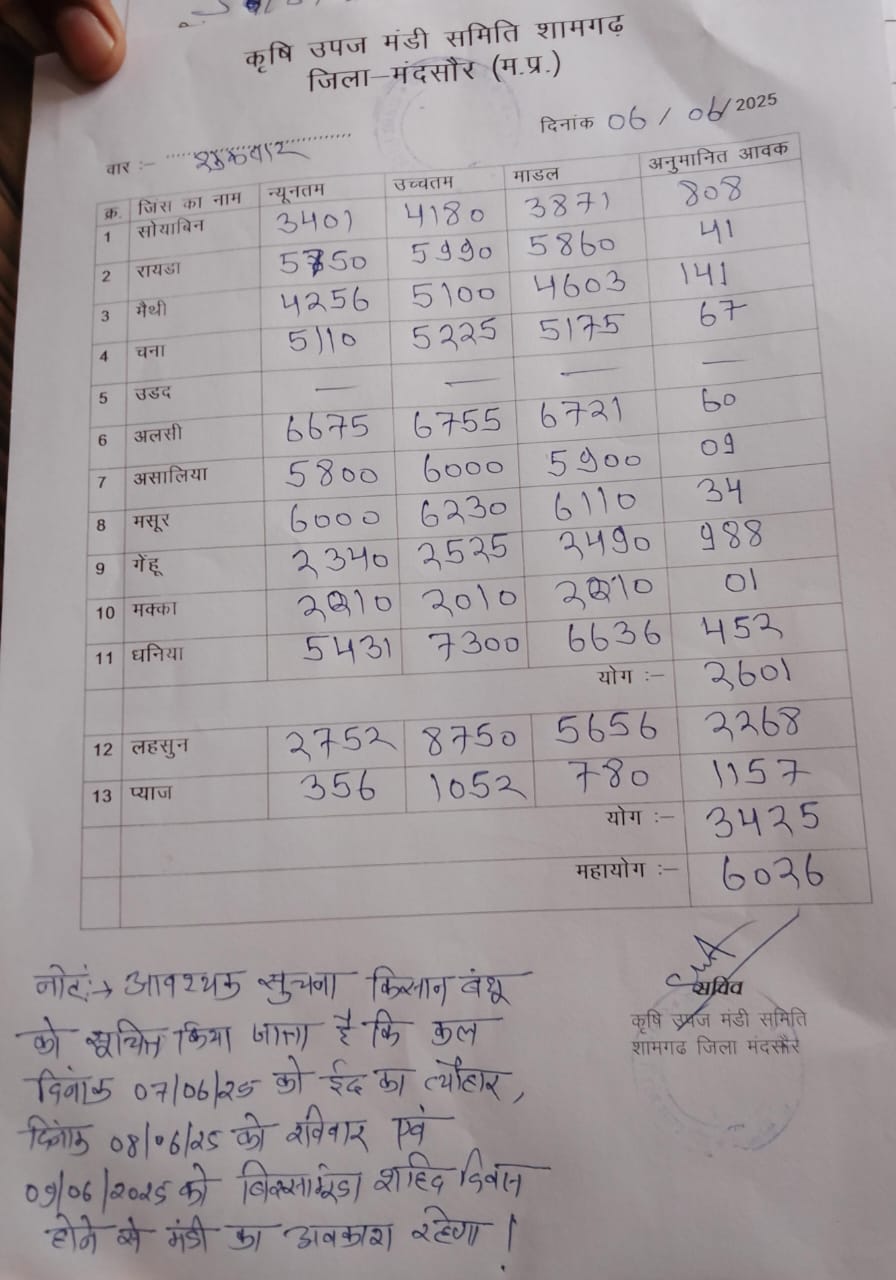 कृषि उपज मंडी समिति शामगढ़
जिला–मंदसौर (म.प्र.)
दिनांक 06 / 06/ 2025
वार :- शुक्रवार
क्र. जिंस का नाम न्यूनतम उच्चतम माडल अनुमानित आवक
1 सोयाबिन 3401 4180 3871 808
2 रायडा 5750 5990 5860 41
3 मैथी 4256 5100 4603 141
4 चना 5110 5225 5175 67
5 उडद — — — —
6 अलसी 6675 6755 6721 60
7 असालिया 5800 6000 5900 09
8 मसूर 6000 6230 6110 34
9 गेंहू 2340 2525 2490 988
10 मक्का 2010 2010 2010 01
11 धनिया 5431 7300 6636 452
योग :- 2601
12 लहसुन 2752 8750 5656 2268
13 प्याज 356 1052 780 1157
योग :- 3425
महायोग :- 6026
नोट:→ आवश्यक सुचना किसान बंधू
को सूचित किया जाता है कि कल
दिनांक 07/06/25 को ईद का त्यौहार,
दिनांक 08/06/25 को रविवार एवं
09/06/2025 को बिरसामुंडा शहिद दिवस
होने से मंडी का अवकाश रहेगा !
सचिव
कृषि उपज मंडी समिति
शामगढ जिला मंदसौर